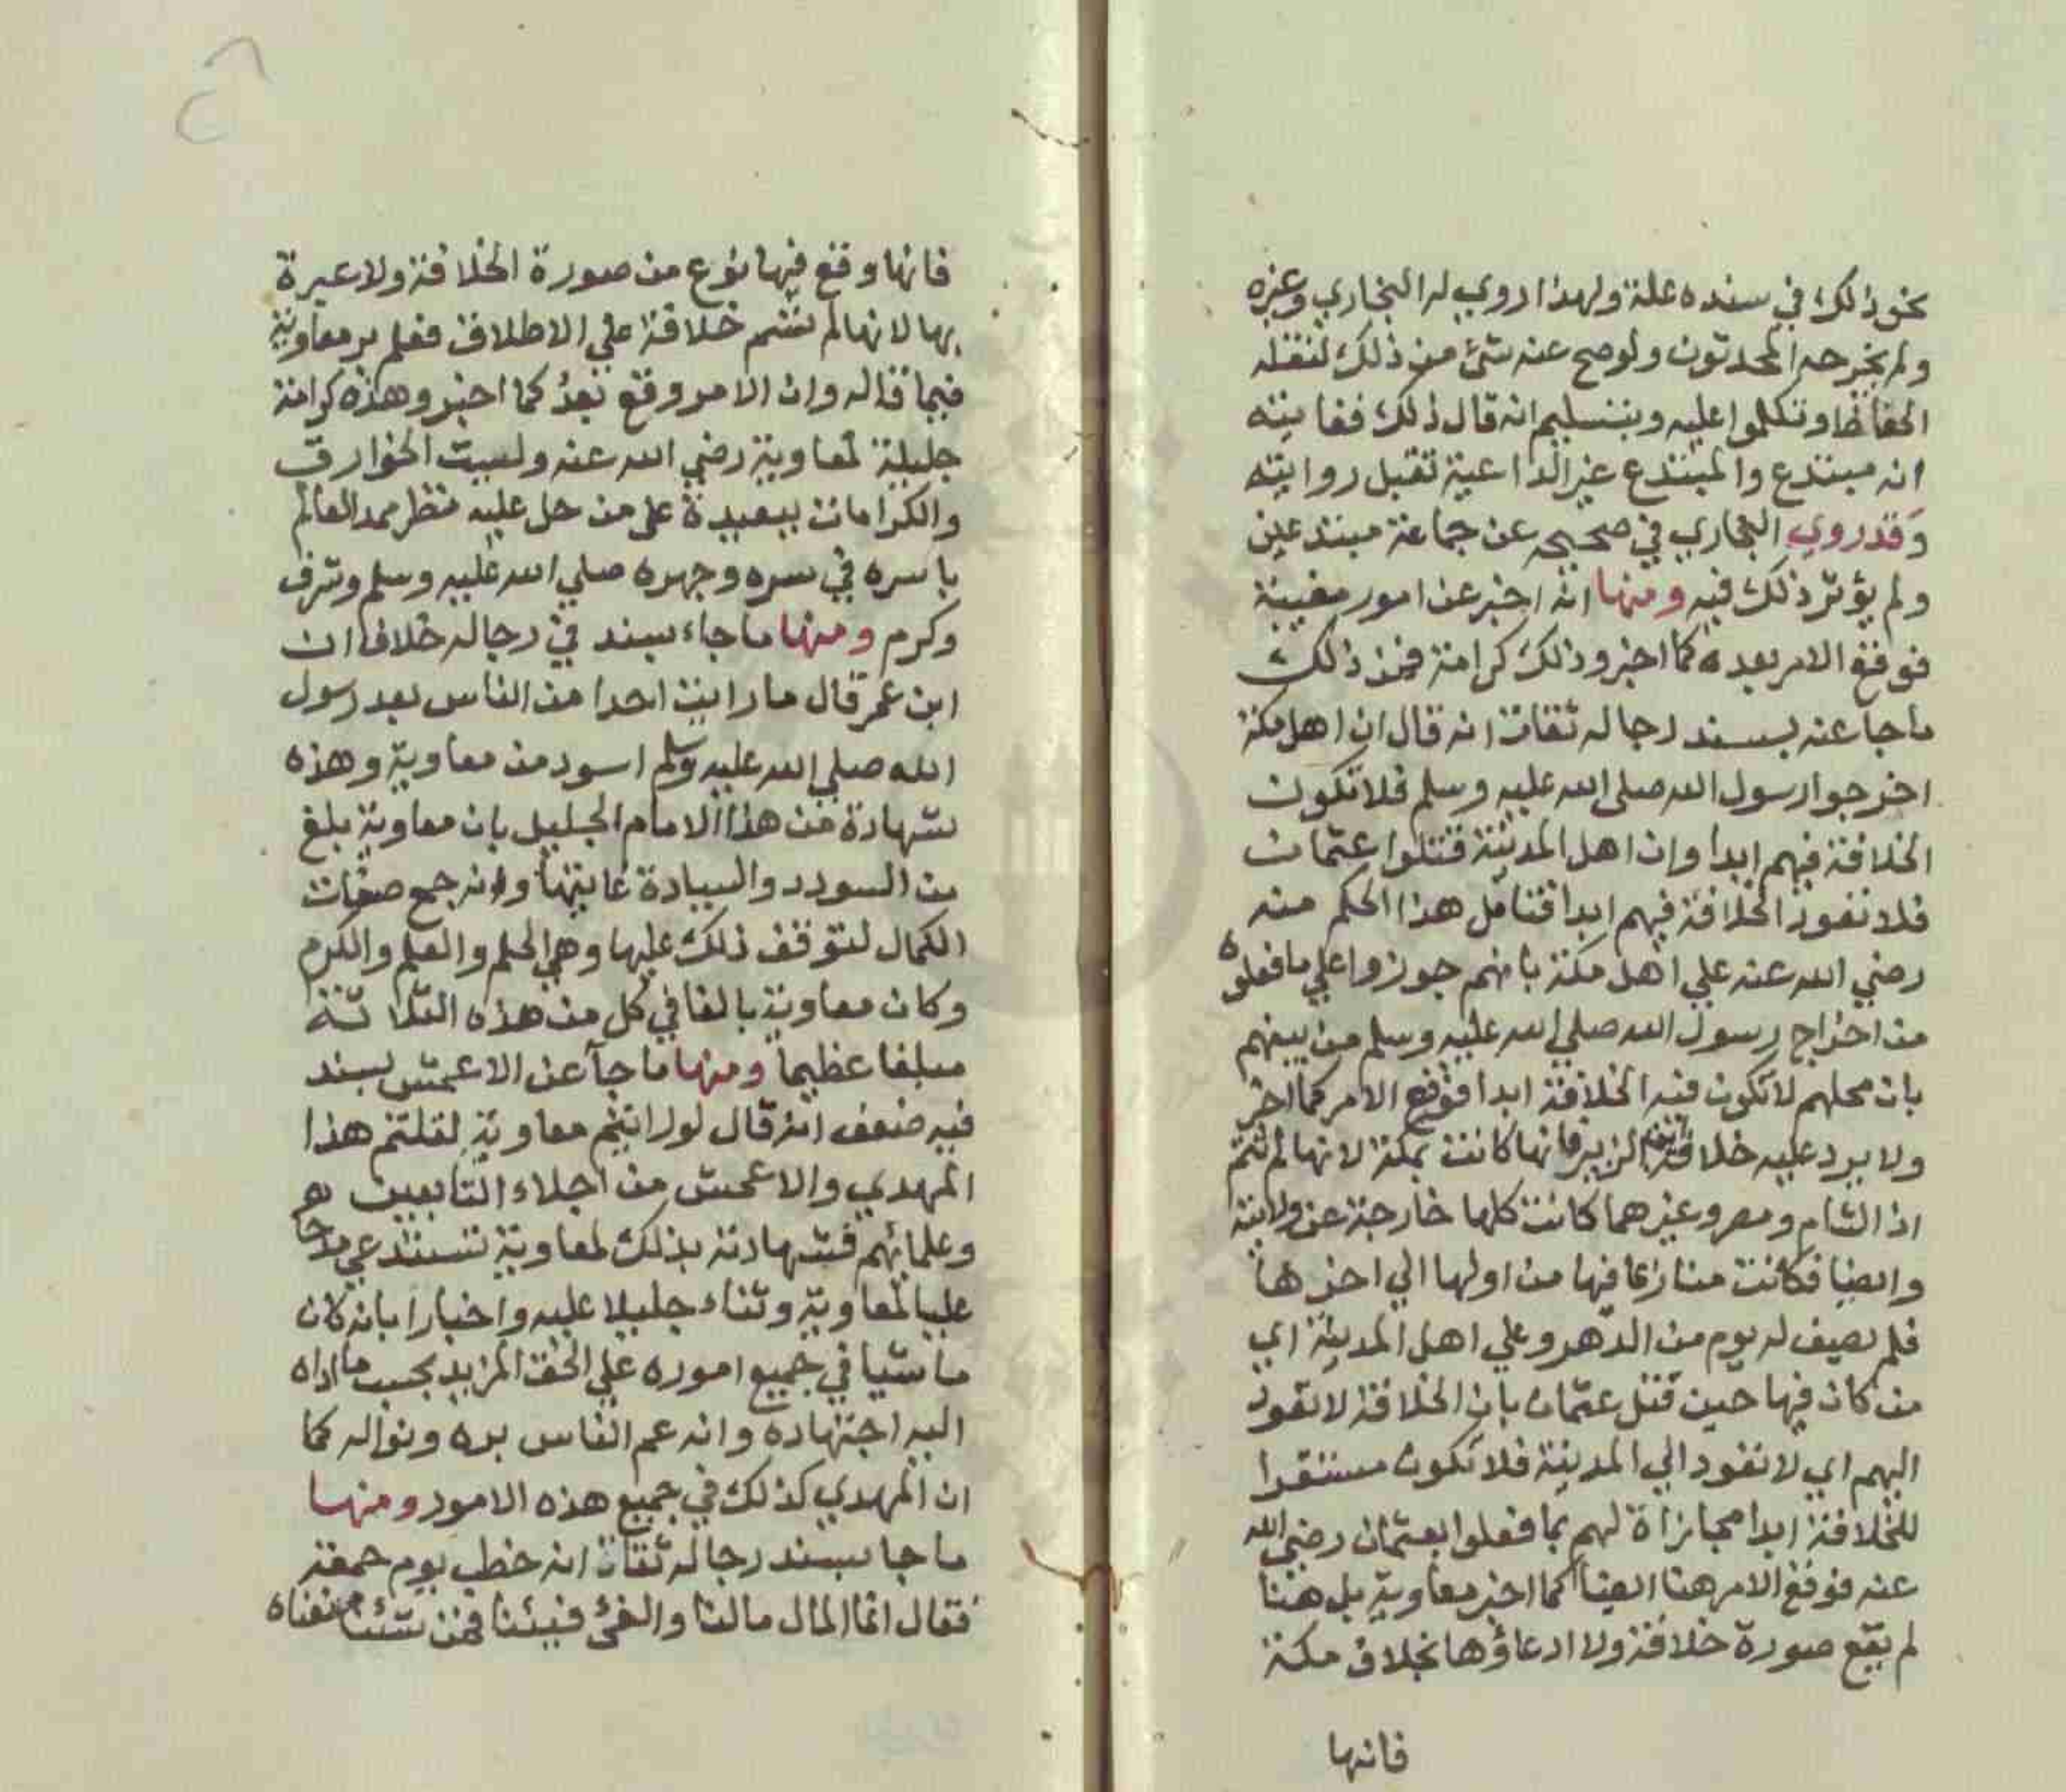 نحو ذلك في سنده علة ولهذا روي له البخاري وغيره
ولم يخرجه المحدثون ولو صح عنه شئ من ذلك لنقله
الحفاظ وتكلموا عليه وبتسليم انه قال ذلك فغايته
انه مبتدع والمبتدع غير الداعية تقبل روايته
وقد روي البخاري في صحيحه عن جماعة مبتدعين
ولم يؤثر ذلك فيه ومنها انه اخبر عن امور مغيبة
فوقع الامر بعده كما اخبر وذلك كرامة فمن ذلك
ماجا عنه بسند رجاله ثقات انه قال ان اهل مكة
اخرجوا رسول الله صلى الله عليه وسلم فلا تكون
الخلافة فيهم ابدا وان اهل المدينة قتلوا عثمان
فلا تعود الخلافة فيهم ابدا فتامل هذا الحكم منه
رضي الله عنه علي اهل مكة بانهم جوزوا علي ما فعلوه
من اخراج رسول الله صلي الله عليه وسلم من بينهم
بان محلهم لا تكون فيه الخلافة ابدا فوقع الامر كما اخبر
ولا يرد عليه خلافة ابن الزبير فانها كانت بمكة لانها لم تتم
اذ الشام ومصر وغيرهما كانت كلها خارجة عن ولايته
وايضا فكانت منازعا فيها من اولها الي اخرها
فلم يصف له يوم من الدهر وعلي اهل المدينة اي
من كان فيها حين قتل عثمان بان الخلافة لا تعود
اليهم اي لا تعود الي المدينة فلا تكون مستقرا
للخلافة ابدا مجازاة لهم بما فعلوا بعثمان رضي الله
عنه فوقع الامر هنا ايضا كما اخبر معاوية بل هنا
لم يقع صورة خلافة ولا ادعاؤها بخلاف مكة
فانها
فانها وقع فيها نوع من صورة الخلافة ولا عبرة
بها لانها لم تتم خلافة علي الاطلاق فعلم بر معاوية
فيما قاله وان الامر وقع بعد كما اخبر وهذه كرامة
جليلة لمعاوية رضي الله عنه وليست الخوارق
والكرامات ببعيدة على من حل عليه نظر ممد العالم
باسره في سره وجهره صلي الله عليه وسلم وشرف
وكرم ومنها ما جاء بسند في رجاله خلاف ان
ابن عمر قال ما رايت احدا من الناس بعد رسول
الله صلي الله عليه وسلم اسود من معاوية وهذه
شهادة من هذا الامام الجليل بان معاوية بلغ
من السودد والسيادة غايتها وانه جمع صفات
الكمال لتوقف ذلك عليها وهي الحلم والعلم والكرم
وكان معاوية بالغا في كل من هذه الثلاثة
مبلغا عظيما ومنها ما جا عن الاعمش بسند
فيه ضعف انه قال لو رايتم معاوية لقلتم هذا
المهدي والاعمش من اجلاء التابعين
وعلمائهم فشهادته بذلك لمعاوية تستدعي مدحا
عليا لمعاوية وثناء جليلا عليه واخبارا بانه كان
ماشيا في جميع اموره علي الحق المزيد بحسب ما اداه
اليه اجتهاده وانه عم الناس بره ونواله كما
ان المهدي كذلك في جميع هذه الامور ومنها
ما جا بسند رجاله ثقات انه خطب يوم جمعة
فقال انما المال مالنا والفئ فيئنا فمن شئنا منعناه